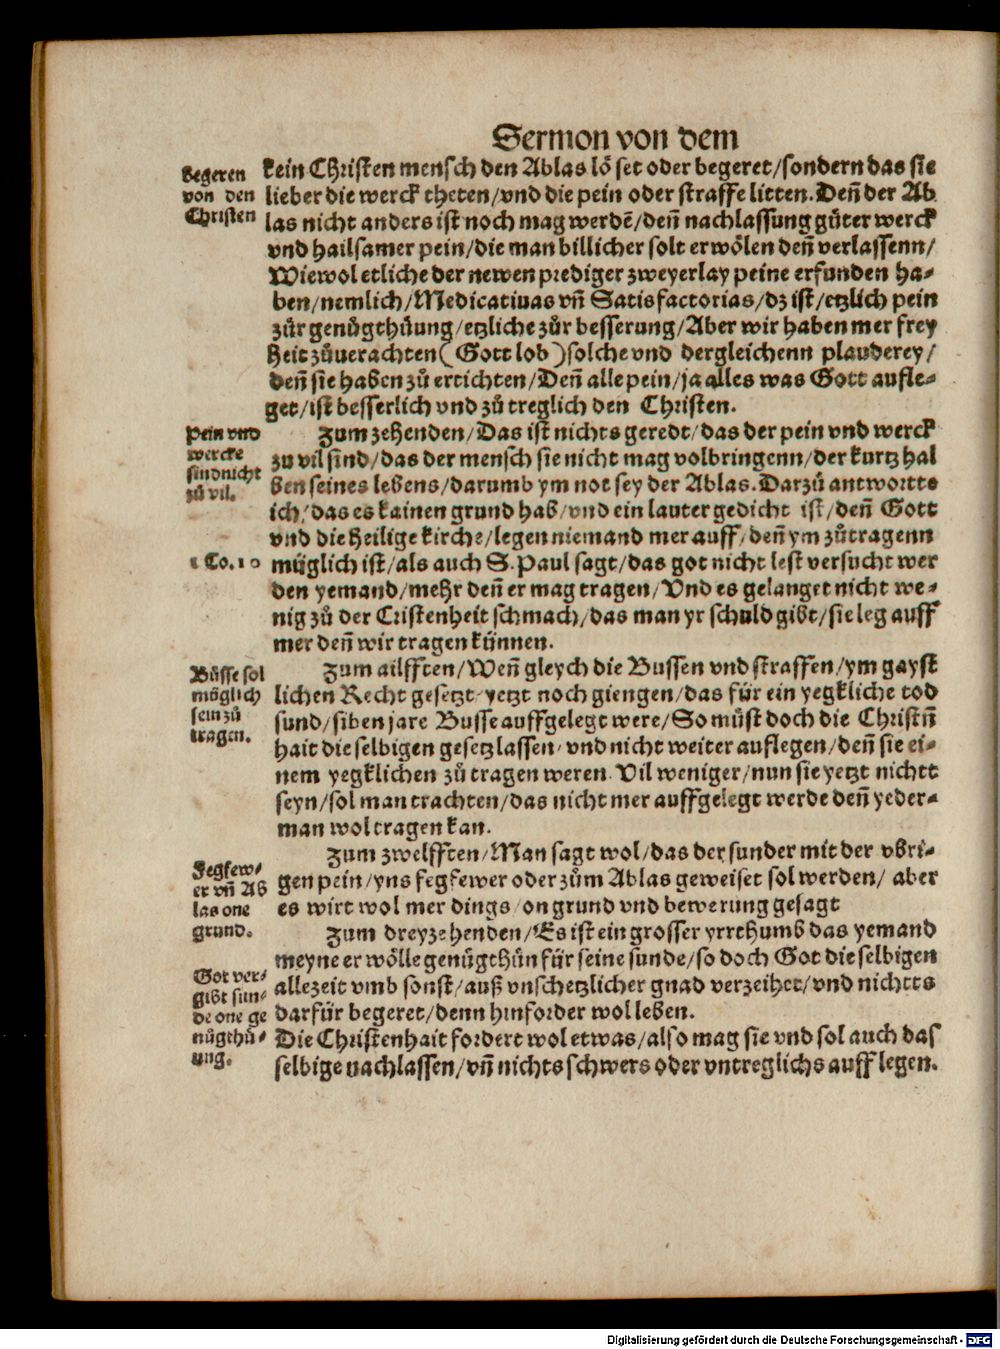 Sermon von dem
begeren
von den
Christen
kein Christen mensch den Ablas lö set oder begeret/sondern das sie
lieber die werck theten/vnd die pein oder straffe litten. Deñ der Ab
las nicht anders ist noch mag werdē/deñ nachlassung gůter werck
vnd hailsamer pein/die man billicher solt erwölen deñ verlassenn/
Wiewol etliche der newen prediger zweyerlay peine erfunden ha-
ben/nemlich/Medicatiuas vñ Satisfactorias/dz ist/etzlich pein
zůr genůgthůung/etzliche zůr besserung/Aber wir haben mer frey
heit zůuerachten(Gott lob)solche vnd dergleichenn plauderey/
deñ sie haben zů ertichten/Deñ alle pein/ja alles was Gott aufle-
get/ist besserlich vnd zů treglich den Christen.
Pein vnd
wercke
sind nicht
zů vil.
1 Co. 10
Zum zehenden/Das ist nichts geredt/das der pein vnd werck
zu vil sind/das der mensch sie nicht mag volbringenn/der kurtz hal
ben seines lebens/darumb ym not sey der Ablas. Darzů antwortte
ich/das es kainen grund hab/vnd ein lauter gedicht ist/deñ Gott
vnd die heilige kirche/legen niemand mer auff/deñ ym zůtragenn
müglich ist/als auch S. Paul sagt/das got nicht lest versucht wer
den yemand/mehr deñ er mag tragen/Vnd es gelanget nicht we-
nig zů der Cristenheit schmach/das man yr schuld gibt/sie leg auff
mer deñ wir tragen künnen.
Bůsse sol
möglich
sein zů
tragen.
Zum ailfften/Weñ gleych die Bussen vnd straffen/ym gayst
lichen Recht gesetzt/yetzt noch giengen/das für ein yegkliche tod
sund/siben jare Busse auffgelegt were/So můst doch die Christñ
hait die selbigen gesetz lassen/vnd nicht weiter auflegen/deñ sie ei-
nem yegklichen zů tragen weren. Vil weniger/nun sie yetzt nichtt
seyn/sol man trachten/das nicht mer auffgelegt werde deñ yeder-
man wol tragen kan.
Fegfew-
er vñ Ab
las one
grund.
Zum zwelfften/Man sagt wol/das der sunder mit der vbri-
gen pein/yns fegfewer oder zům Ablas geweiset sol werden/ aber
es wirt wol mer dings/on grund vnd bewerung gesagt
Got ver-
gibt sun-
de one ge
nůgthů-
ung.
Zum dreyzehenden/Es ist ein grosser yrrthumb das yemand
meyne er wölle genůgthůn für seine sunde/so doch Got die selbigen
allezeit vmb sonst/auß vnschetzlicher gnad verzeihet/vnd nichtts
darfür begeret/denn hinforder wol leben.
Die Christenhait fordert wol etwas/also mag sie vnd sol auch das
selbige nachlassen/vñ nichts schwers oder vntreglichs auff legen.
Digitalisierung gefördert durch die Deutsche Forschungsgemeinschaft - DFG